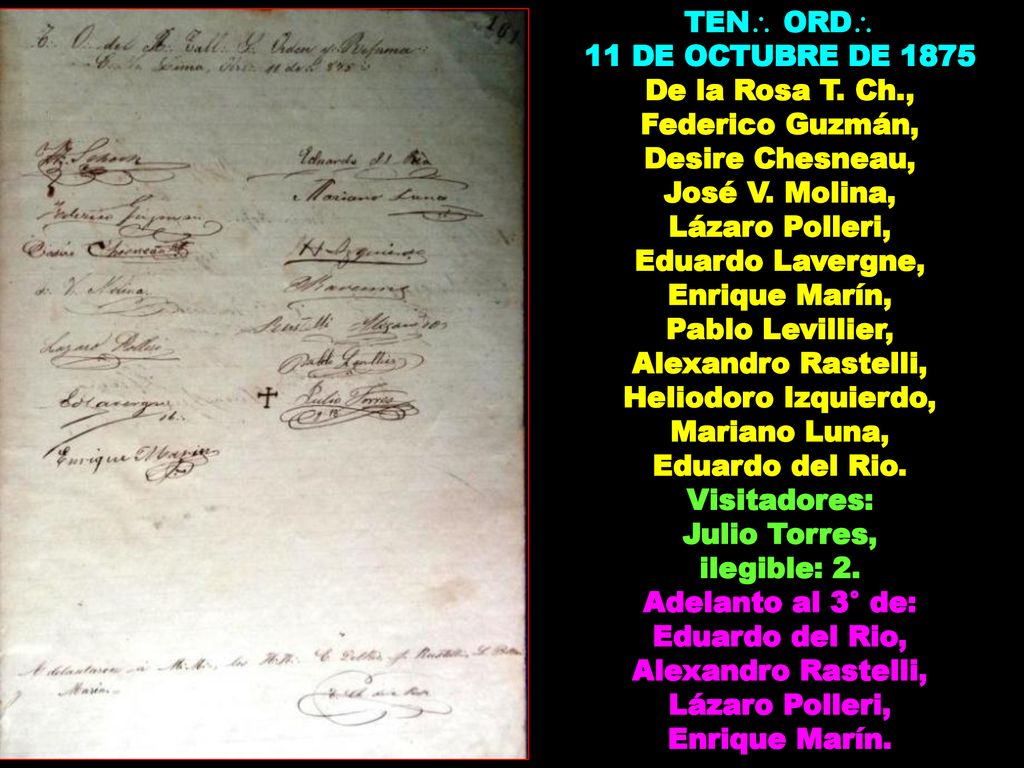 191
T. O. del R. Tall. L. Orden y Reforma
11 de 875
Eduardo del Rio
Mariano Luna
Federico Guzman
Desiré Chesneau
H Izquierdo
J. V. Molina
Rastelli Alejandro
Lazaro Polleri
Pablo Levillier
Ed Lavergne
Julio Torres
Enrique Marin
Adelantaron á M. M., los H. H.
Marin
TEN∴ ORD∴
11 DE OCTUBRE DE 1875
De la Rosa T. Ch.,
Federico Guzmán,
Desire Chesneau,
José V. Molina,
Lázaro Polleri,
Eduardo Lavergne,
Enrique Marín,
Pablo Levillier,
Alexandro Rastelli,
Heliodoro Izquierdo,
Mariano Luna,
Eduardo del Rio.
Visitadores:
Julio Torres,
ilegible: 2.
Adelanto al 3° de:
Eduardo del Rio,
Alexandro Rastelli,
Lázaro Polleri,
Enrique Marín.